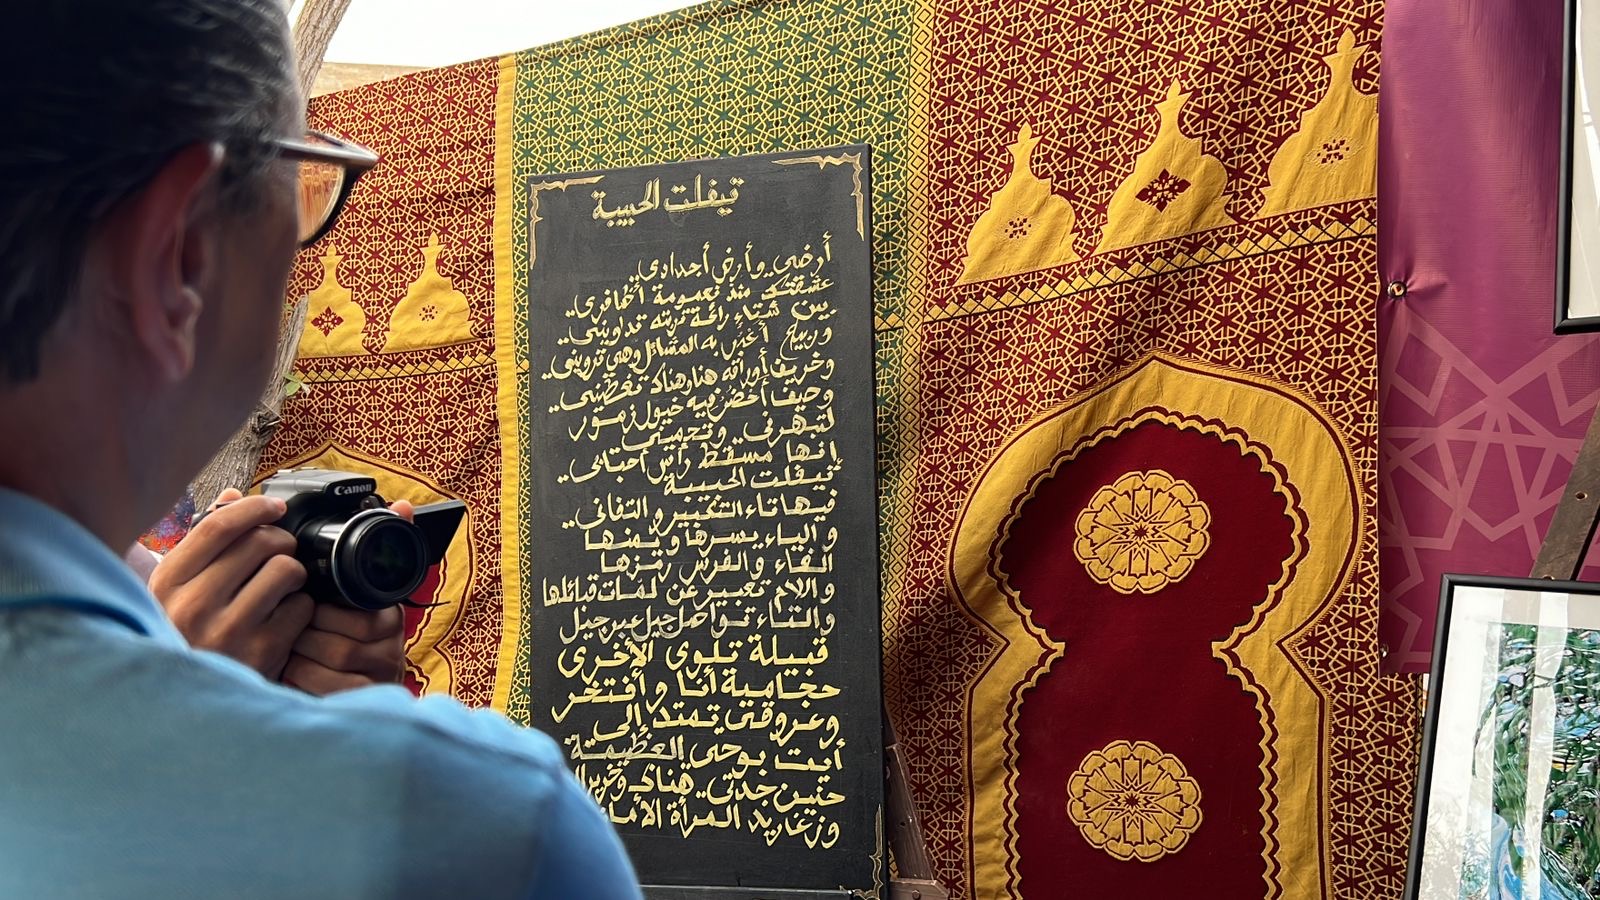 تيفلت الحبيبة
أرضي وأرض أجدادي..
عشقتك منذ نعومة أظافري..
بين شتاء رائحة تربته تداويني..
وربيع أغني به المشاتل وهي تزويني..
وخريف أوراقه هنا وهناك تغطيني..
وصيف أحضر فيه خيول زمور
لتبهرني وتحميني
إنها مسقط رأس أحبابي..
تيفلت الحبيبة
فيها تاء التغيير والتفاني..
والياء يسرها ويمنها
الفاء والفرس رمزها
واللام تعبير عن لهات قبائلها
والتاء تواصل جيل عبر جيل
قبيلة تلوى الأخرى
حجامية أنا وأفتخر
وعروقي تمتد إلى
أيت بوحي العظيمة
حنين جدتي.. هناك وخرير
وزغاريد المرأة
Canon